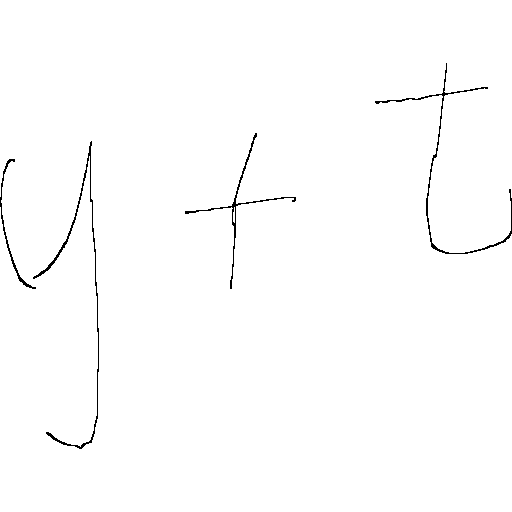 y + t